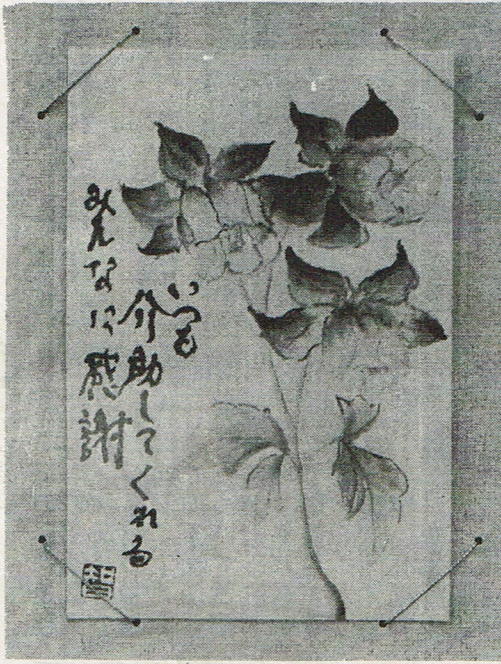 いつも
介助してくれる
みんなに感謝